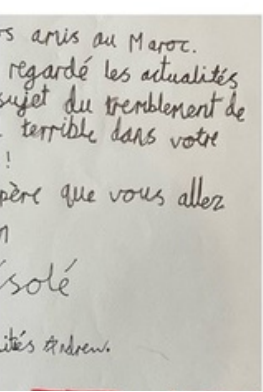 s amis au Maroc.
regardé les actualités
sujet du tremblement de
terrible dans votre
!
père que vous allez
n
solé
ités Andrew.